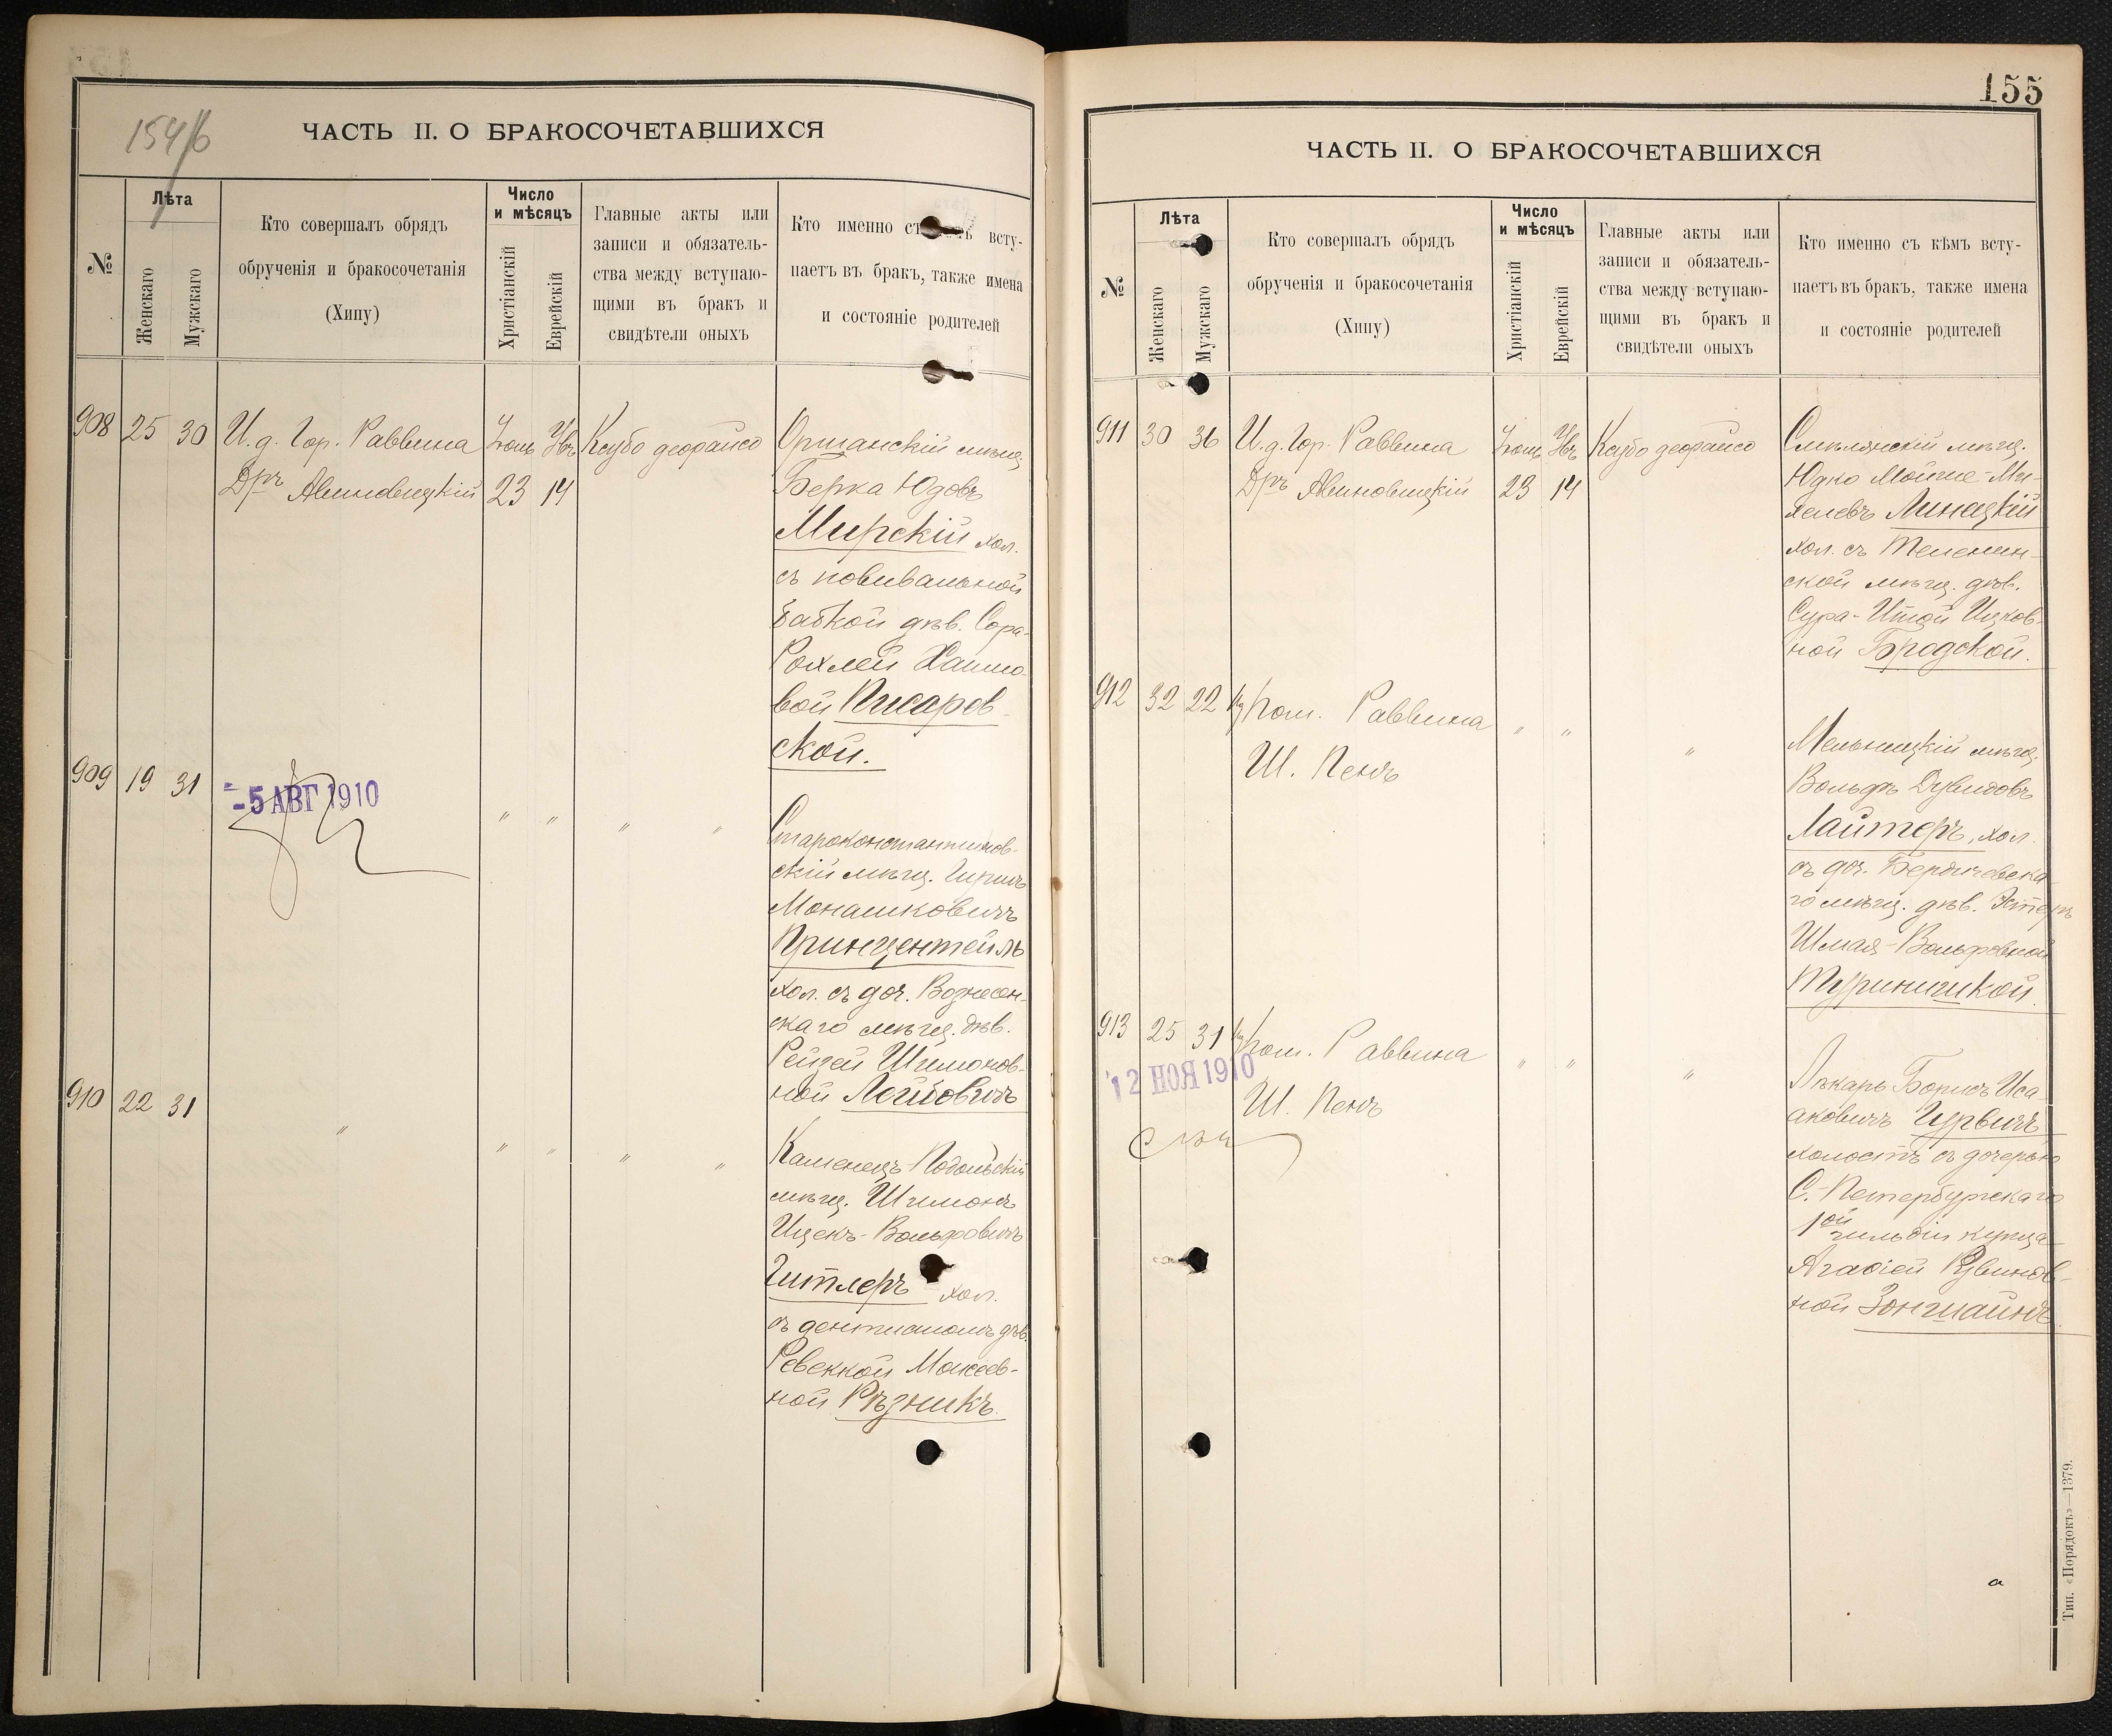 154/б
ЧАСТЬ II. О БРАКОСОЧЕТАВШИХСЯ
№
Лѣта
Женскаго
Мужскаго
Кто совершалъ обрядъ
обрученія и бракосочетанія
(Хипу)
Число
и мѣсяцъ
Христіанскій
Еврейскій
Главные акты или
записи и обязатель-
ства между вступаю-
щими въ бракъ и
свидѣтели оныхъ
Кто именно съ всту-
паетъ въ бракъ, также имена
и состояніе родителей
908 25 30
И. д. Гор. Раввина
Дръ Авиновицкій
23 14
Ксубо деорайсо
Оршанскій мѣщ.
Берка Юдовъ
Мирскій хол.
съ повивальной
бабкой дѣв. Сора-
Рохлей Хаимо-
вой Писарев-
ской.
909 19 31
-5 АВГ 1910
" " " "
Староконстантинов-
скій мѣщ. Гиршъ
Монашковичъ
Принцентейлъ
хол. съ доч. Вознесен-
скаго мѣщ. дѣв.
Рейзей Шимонов-
ной Лейбовичъ
910 22 31
" " " " "
Каменецъ-Подольскій
мѣщ. Шимонъ
Ицекъ-Вольфовичъ
Гитлеръ хол.
съ дентисткой дѣв.
Ревеккой Моисеев-
ной Рѣзникъ.
155
ЧАСТЬ II. О БРАКОСОЧЕТАВШИХСЯ
№
Лѣта
Женскаго
Мужскаго
Кто совершалъ обрядъ
обрученія и бракосочетанія
(Хипу)
Число
и мѣсяцъ
Христіанскій
Еврейскій
Главные акты или
записи и обязатель-
ства между вступаю-
щими въ бракъ и
свидѣтели оныхъ
Кто именно съ кѣмъ всту-
паетъ въ бракъ, также имена
и состояніе родителей
911 30 36
И. д. Гор. Раввина
Дръ Авиновицкій
23 14
Ксубо деорайсо
Смѣлянскій мѣщ.
Юдко Мойше-Ми-
хелевъ Линецкій
хол. съ
ской мѣщ. дѣв.
Сура-Итой Ицков-
ной Бродской.
912 32 22
Пом. Раввина
Ш. Пенъ
" " "
Мельницкій мѣщ.
Вольфъ Дувидовъ
Лайтеръ, хол.
съ доч. Бердичевска-
го мѣщ. дѣв. Эстеръ
Шмая-Вольфовной
913 25 31
Пом. Раввина
12 НОЯ 1910
Ш. Пенъ
" " "
Лѣкарь Борисъ Иса-
аковичъ Гурвичъ
холостъ съ дочерью
С.-Петербургскаго
1ой гильдіи купца
Рувинов-
ной Зонштайнъ.
Тип. «Порядокъ»—1379.